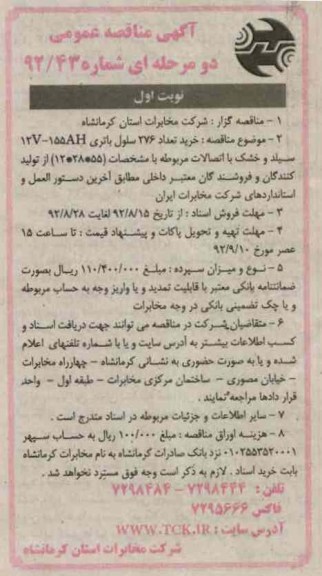 آگهی مناقصه عمومی
دو مرحله ای شماره ۹۲/۴۳
نوبت اول
۱ - مناقصه گزار : شرکت مخابرات استان کرمانشاه
۲ - موضوع مناقصه : خرید تعداد ۲۷۶ سلول باتری ۱۲V-۱۵۵AH
سیلد و خشک با اتصالات مربوطه با مشخصات (۵۵*۲۸*۱۲) از تولید
کنندگان و فروشندگان معتبر داخلی مطابق آخرین دستور العمل و
استانداردهای شرکت مخابرات ایران
۳ - مهلت فروش اسناد : از تاریخ ۹۲/۸/۱۵ لغایت ۹۲/۸/۲۸
۴ - مهلت تهیه و تحویل پاکات و پیشنهاد قیمت : تا ساعت ۱۵
عصر مورخ ۹۲/۹/۱۰
۵ - نوع و میزان سپرده : مبلغ ۱۱۰/۴۰۰/۰۰۰ ریال بصورت
ضمانتنامه بانکی معتبر با قابلیت تمدید و یا واریز وجه به حساب مربوطه
و یا چک تضمینی بانکی در وجه مخابرات
۶ - متقاضیان شرکت در مناقصه می توانند جهت دریافت اسناد و
کسب اطلاعات بیشتر به آدرس سایت و یا با شماره تلفنهای اعلام
شده و یا به صورت حضوری به نشانی کرمانشاه - چهارراه مخابرات
- خیابان مصوری - ساختمان مرکزی مخابرات - طبقه اول - واحد
قرار دادها مراجعه نمایند .
۷ - سایر اطلاعات و جزئیات مربوطه در اسناد مندرج است .
۸ - هزینه اوراق مناقصه : مبلغ ۱۰۰/۰۰۰ ریال به حساب سپهر
۰۱۰۲۵۵۳۵۲۰۰۰۱ نزد بانک صادرات کرمانشاه به نام مخابرات کرمانشاه
بابت خرید اسناد . لازم به ذکر است وجه فوق مسترد نخواهد شد .
تلفن : ۷۲۹۸۴۴۴ - ۷۲۹۸۴۸۴
فاکس ۷۲۹۵۶۶۶
آدرس سایت : WWW.TCK.IR
شرکت مخابرات استان کرمانشاه